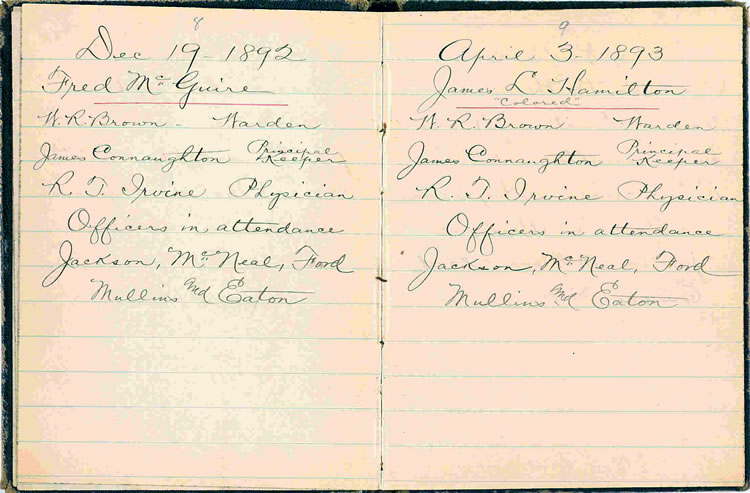 8
Dec 19 - 1892
Fred McGuire
W. R. Brown - Warden
James Connaughton Principal Keeper
R. T. Irvine Physician
Officers in attendance
Jackson, McNeal, Ford
Mullins and Eaton
9
April 3 - 1893
James L Hamilton
"Colored"
W. R. Brown Warden
James Connaughton Principal Keeper
R. T. Irvine Physician
Officers in attendance
Jackson, McNeal, Ford
Mullins and Eaton